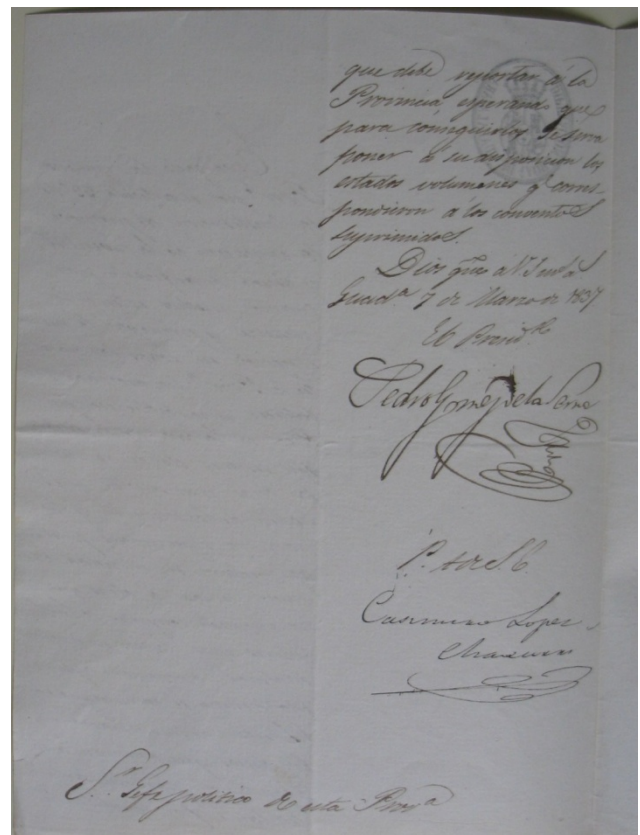 que debe reportar á la
Provincia, esperando que
para conseguirlos se sirva
poner á su disposicion los
citados volumenes q.e corres-
pondieron á los conventos
suprimidos.
Dios gue á V.S. m.s a.s
Guad.a 7 de Marzo de 1837
El Presid.te
Pedro Gomez de la Serna
P. A. de S. E.
Casimiro Lopez
Chavarri
S.or Gefe politico de esta Prov.a